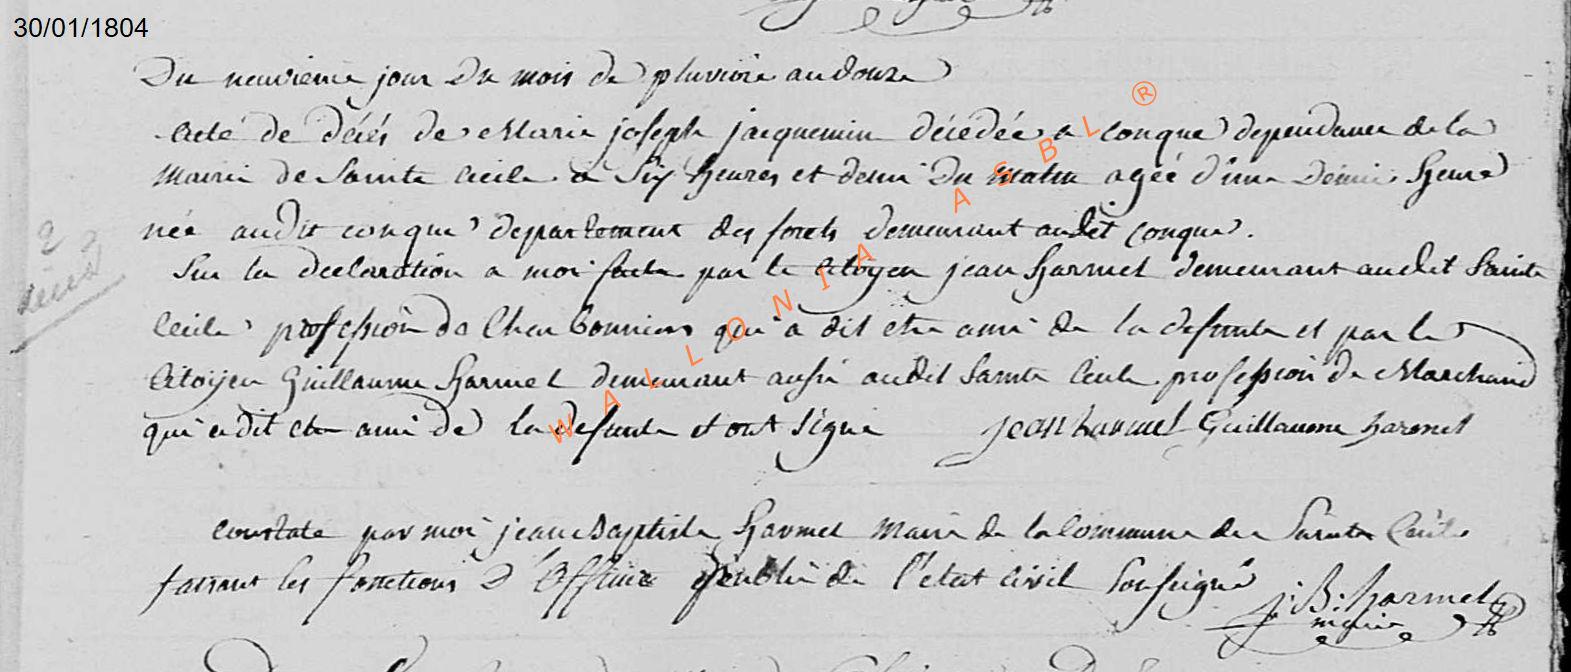 30/01/1804
Du neuvieme jour Du mois de pluviose an douze
Acte de décés de Marie joseph jacquemin décédée a conque dependance de la
Mairie de Sainte Cecile a Six heures et demi Du matin agée d'une Demie heure
née audit conque departement des forets demeurant audit conque.
Sur la declaration a moi faite par le Citoyen jean harmel demeurant audit Sainte
Cecile profession de Charbonnier qui a dit etre ami de la defunte et par le
Citoyen Guillaume harmel demeurant aussi audit Sainte Cecile profession de Marchand
qui a dit etre ami de la defunte et ont signé jean harmel Guillaume harmel
2
déces
constate par moi jean Baptiste harmel Maire de la Commune de Sainte Cecile
faisant les fonctions D'Officier publie de l'etat civil Soussigné
J: B: harmel
maire
WALLONIA ASBL ®